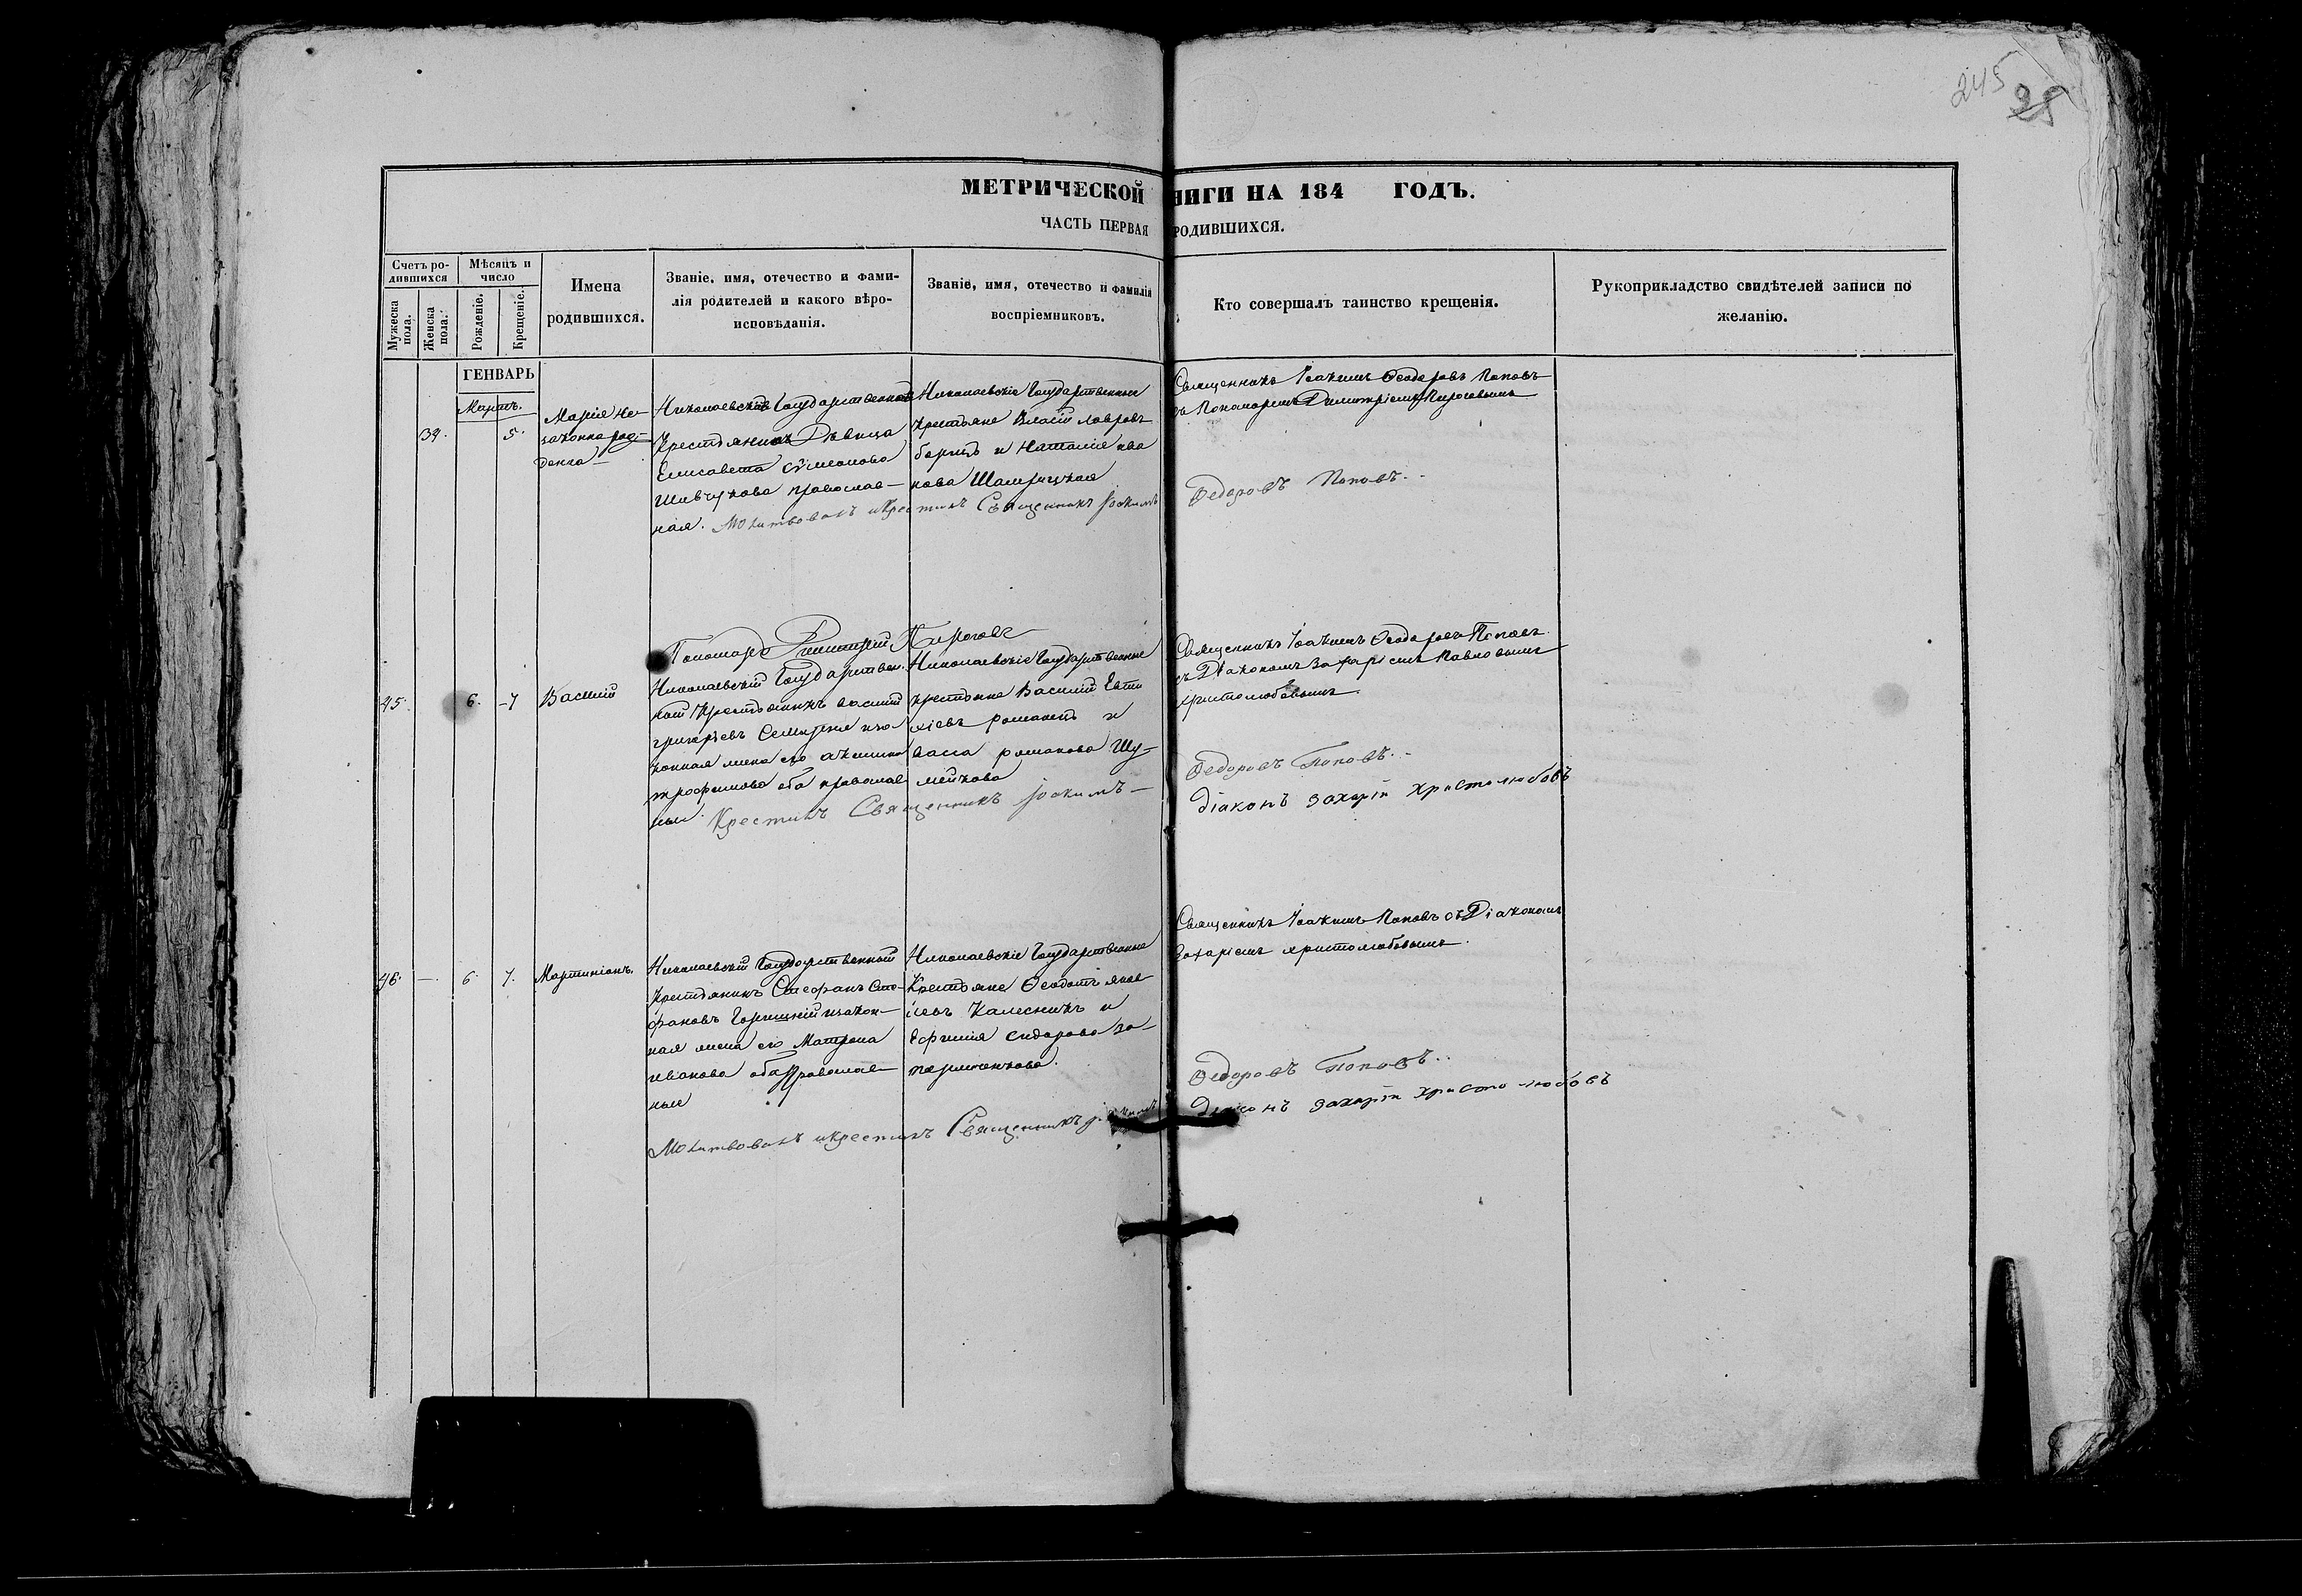 245
28
МЕТРИЧЕСКОЙ НИГИ НА 184 ГОДЪ.
ЧАСТЬ ПЕРВАЯ РОДИВШИХСЯ.
Счетъ родившихся
Мужеска пола.
Женска пола.
Мѣсяцъ и число
Рожденіе.
Крещеніе.
Имена
родившихся.
Званіе, имя, отечество и фами-
лія родителей и какого вѣро-
исповѣданія.
Званіе, имя, отечество и фамилія
воспріемниковъ.
Кто совершалъ таинство крещенія.
Рукоприкладство свидѣтелей записи по
желанію.
ГЕНВАРЬ
Мартъ.
5.
Марія не-
законнорож-
денна
Николаевской Государственной
Крестьянки Дѣвица
Елисавета Симеонова
Шевчукова православ-
ная. Молитвовалъ и Крестилъ Священникъ Іоакимъ
Николаевскіе Государственные
крестьяне Власій Лавровъ
и Наталія Ива
нова
Священникъ Іоакимъ Ѳеодоровъ Поповъ
съ Пономаремъ Димитріемъ Пироговымъ
Ѳедоровъ Поповъ.
Пономарь Димитрій Пироговъ
45.
6.
7
Василій
Николаевскій Государствен.
ной Крестьянинъ Василій
Григорьевъ
конная жена его Акилина
Трофимова оба православ
ные. Крестилъ Священникъ Іоакимъ
Николаевскіе Государственные
крестьяне Василій Евти
хіевъ и
васса романова Шу-
мейкова
Священникъ Іоакимъ Ѳеодоровъ Поповъ
съ Діакономъ Захаріемъ Павловымъ
Христолюбовымъ.
Ѳедоровъ Поповъ.
Діаконъ Захарій Христолюбовъ
46.
—
6.
7.
Мартиніанъ.
Николаевскій Государственной
Крестьянинъ Стефанъ Сте-
фановъ и закон-
ная жена его Матрона
Иванова оба православ
ные
Молитвовалъ и крестилъ Священникъ Іоакимъ
Николаевскіе Государственные
Крестьяне Ѳеодотъ Яков
левъ Калесникъ и
Ефимія Сидорова
Священникъ Іоакимъ Поповъ съ Діакономъ
Захаріемъ Христолюбовымъ.
Ѳедоровъ Поповъ.
Діаконъ Захарій Христолюбовъ